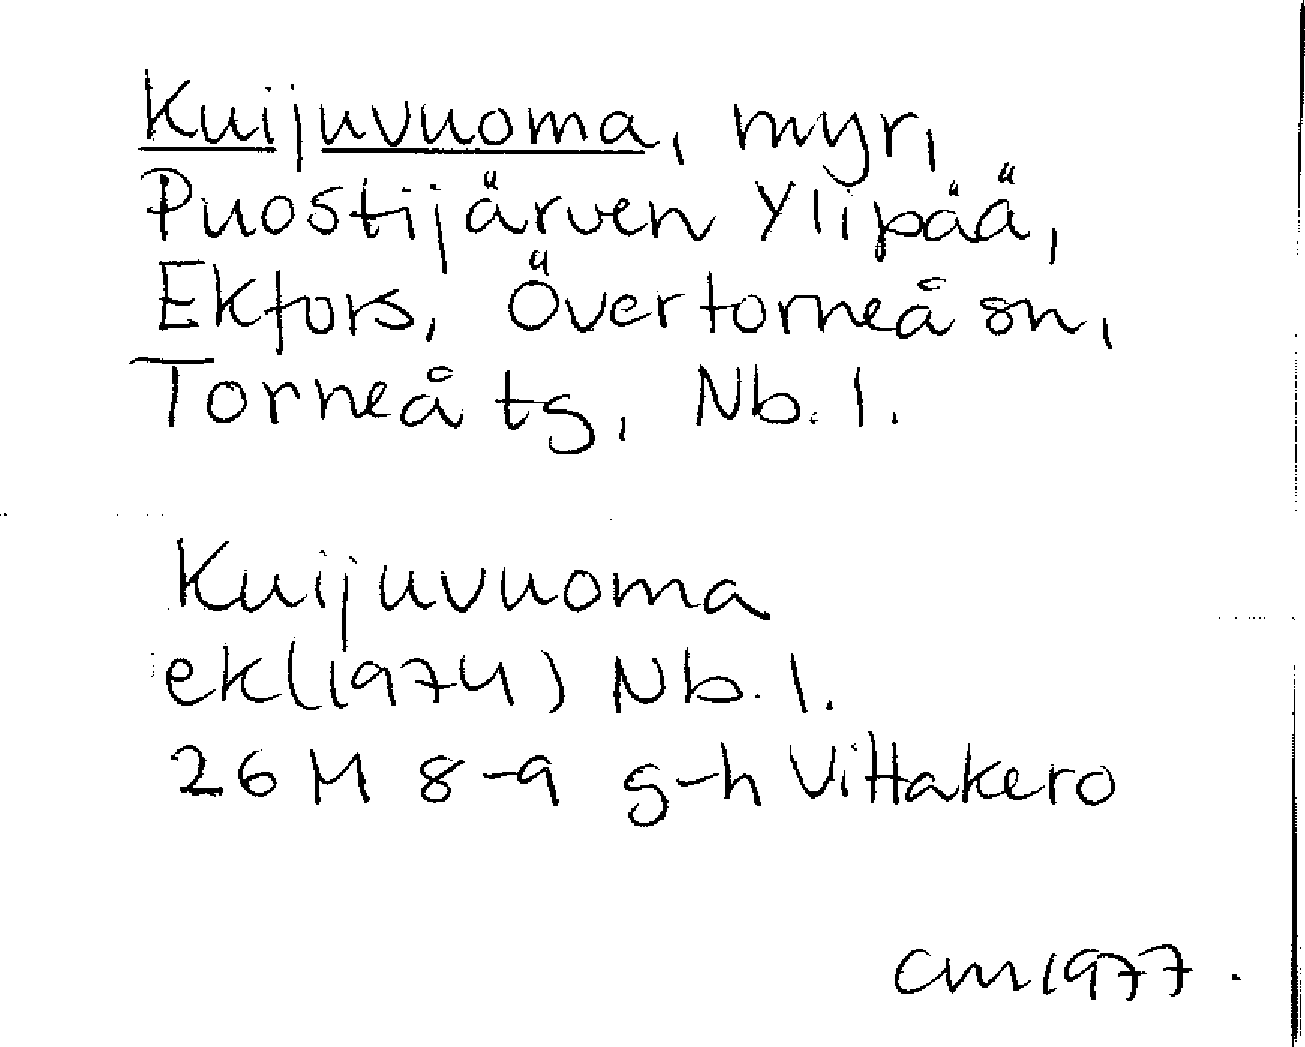 Kuijuvuoma, myr,
Puostijärven Ylipää,
Ekfors, Övertorneå sn,
Torneå tg, Nb. l.
Kuijuvuoma
ek(1974) Nb. l.
26 M 8-9 g-h Vittakero
CM 1977.